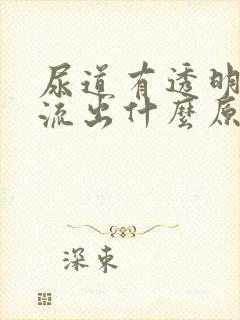 尿道有透明
流出什麼原
深東